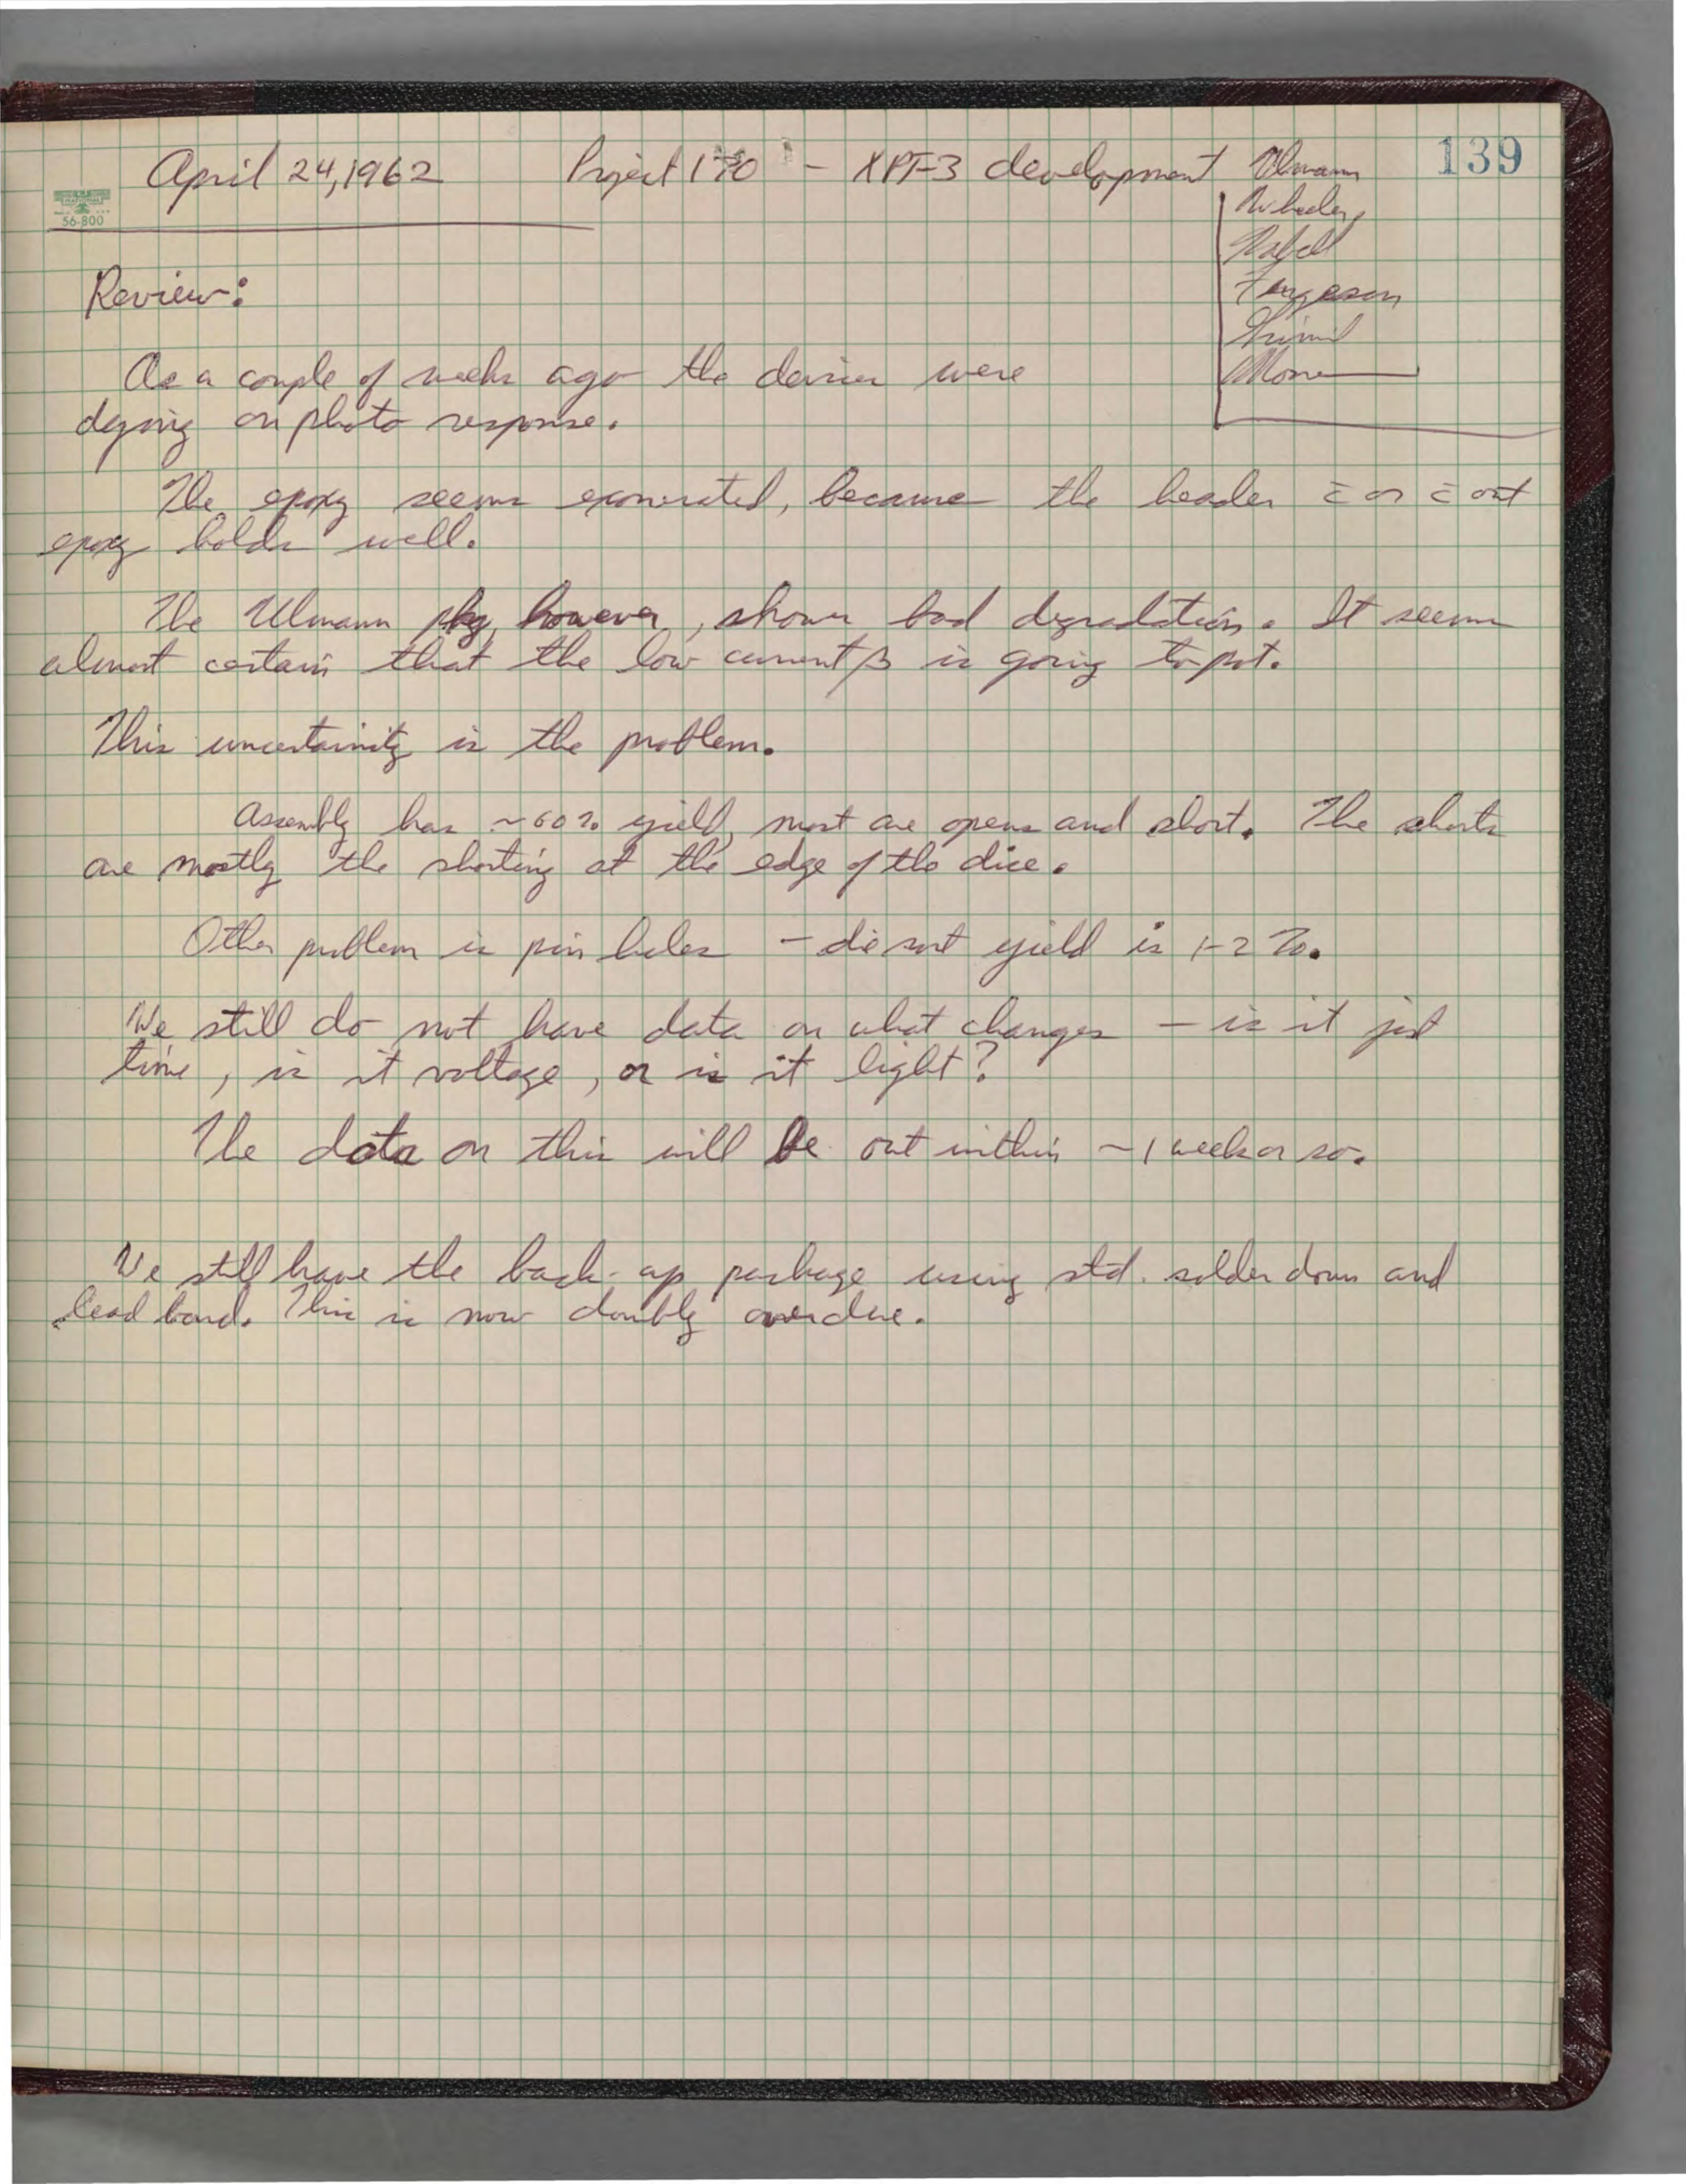 139
April 24, 1962 Project 170 - XPF-3 development Ulmann
Wheeler
Ferguson
Moore
NATIONAL
56-800
Review:
As a couple of weeks ago the devices were
dying on photo response.
The epoxy seems exonerated, because the header c̄ or c̄ out
epoxy holds well.
The Ulmann pkg, however, shows bad degradation. It seems
almost certain that the low current β is going to pot.
This uncertainity is the problem.
Assembly has ~60% yield, most are opens and short. The shorts
are mostly the shorting at the edge of the dice.
Other problem is pin holes - die sort yield is 1-2%.
We still do not have data on what changes - is it just
time, is it voltage, or is it light?
The data on this will be out within ~1 week or so.
We still have the back-up package using std. solder down and
lead bond. This is now doubly overdue.